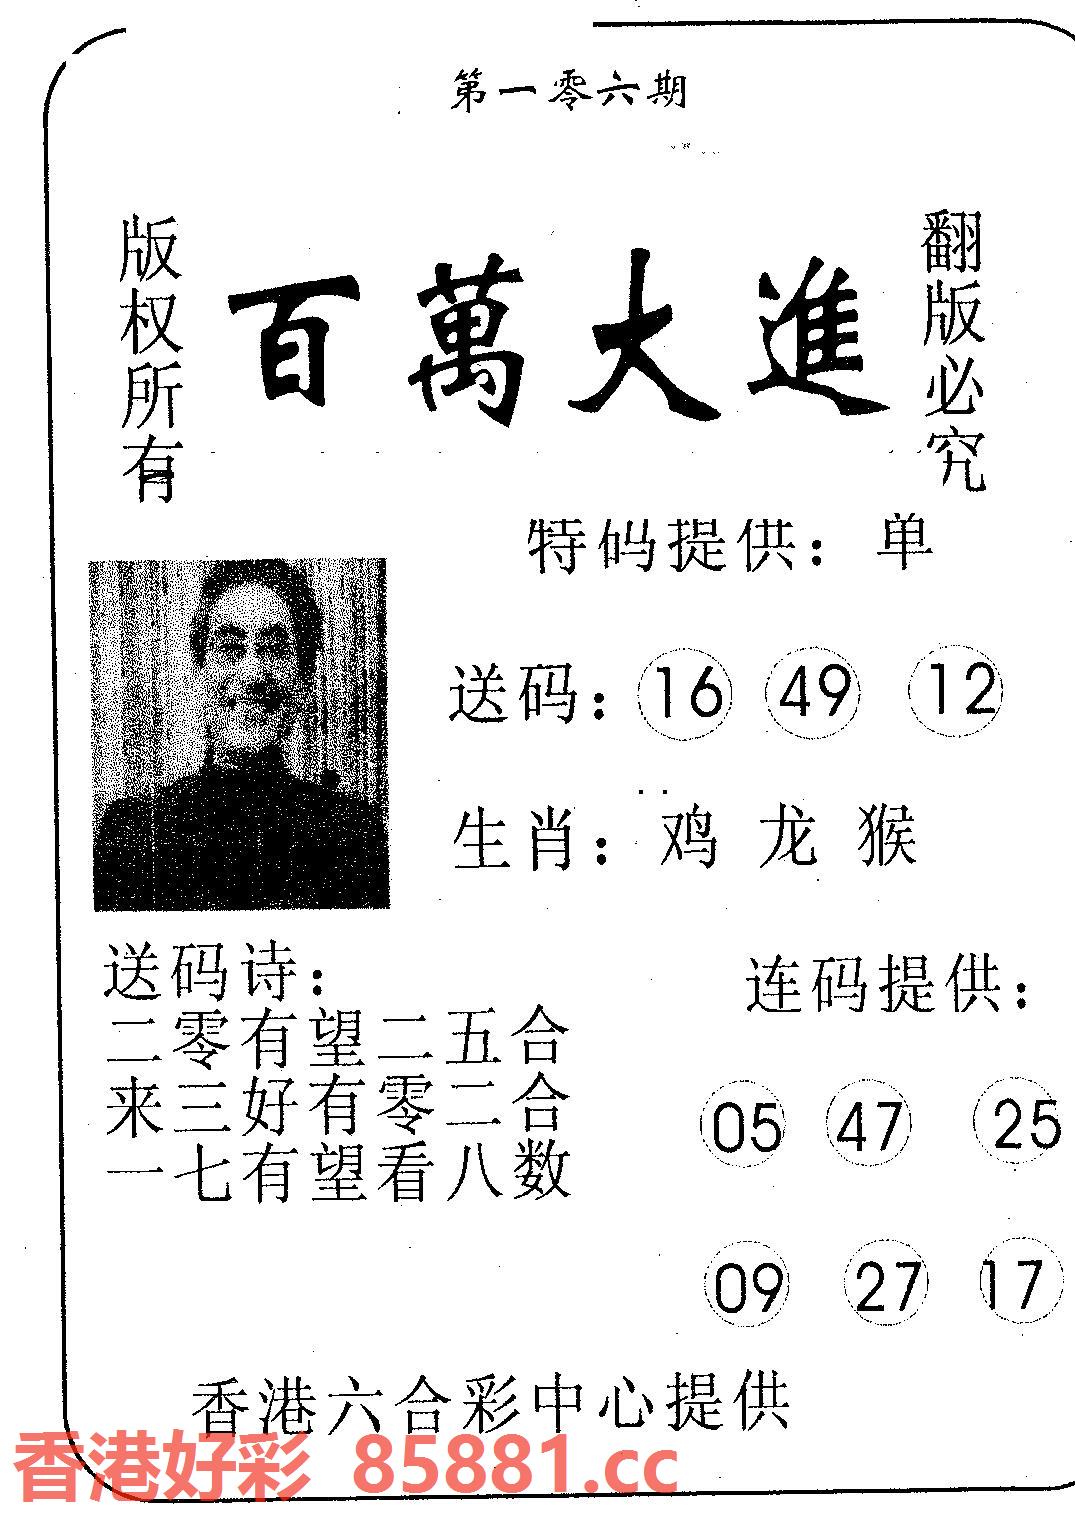 第一零六期
版权所有
百萬大進
翻版必究
特码提供：单
送码：16 49 12
生肖：鸡 龙 猴
送码诗：
二零有望二五合
来三好有零二合
一七有望看八数
连码提供：
05 47 25
09 27 17
香港六合彩中心提供
香港好彩 85881.cc